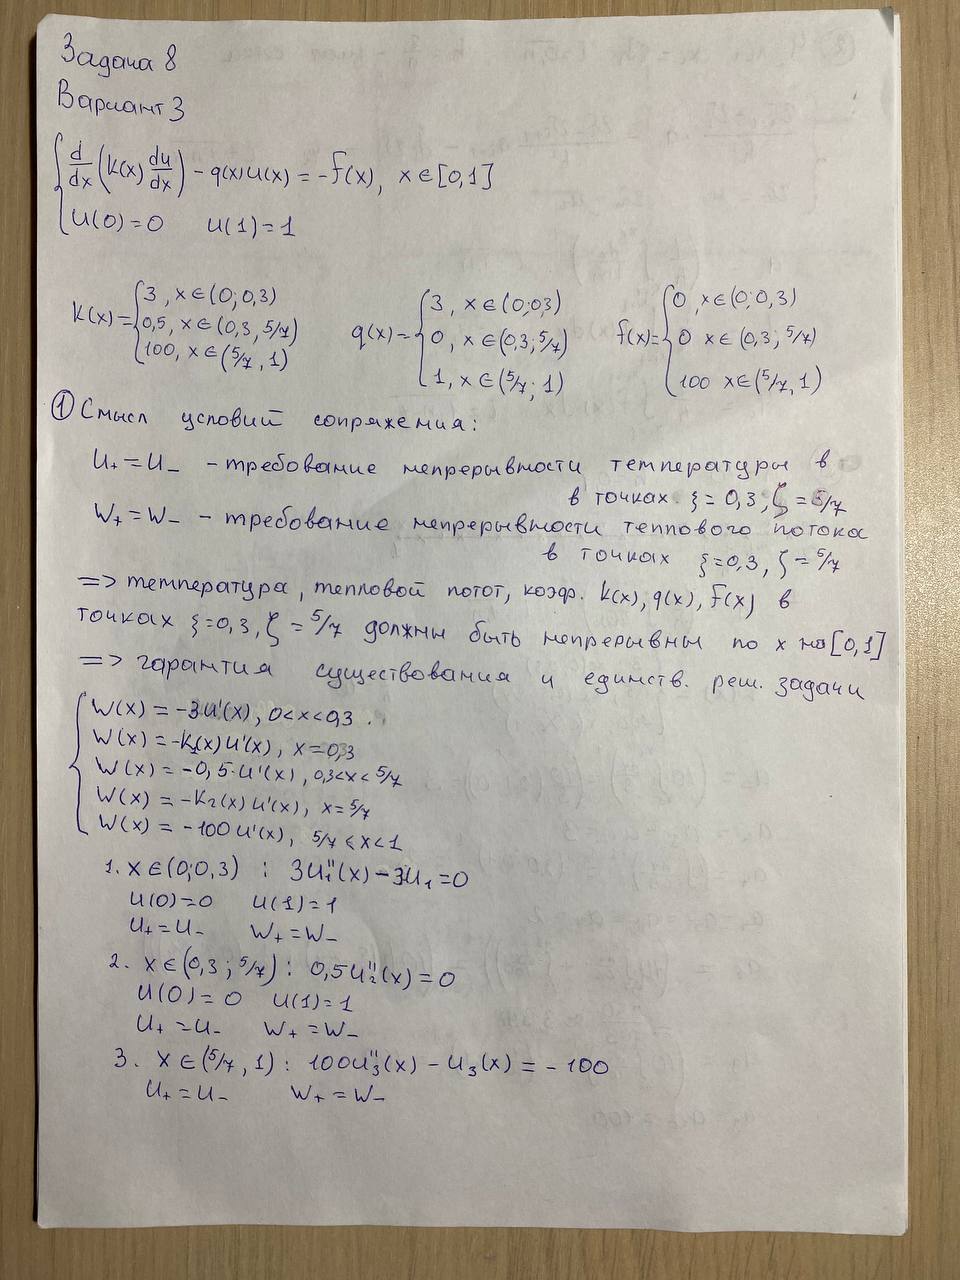 Задача 8
Вариант 3
{ d/dx (k(x) du/dx) - q(x)u(x) = -f(x), x∈[0,1]
u(0)=0 u(1)=1
k(x)= { 3, x∈(0;0,3) q(x)= { 3, x∈(0;0,3) f(x)= { 0, x∈(0;0,3)
0,5, x∈(0,3, 5/7) 0, x∈(0,3; 5/7) 0 x∈(0,3; 5/7)
100, x∈(5/7, 1) 1, x∈(5/7; 1) 100 x∈(5/7, 1)
① Смысл условий сопряжения:
u₊=u₋ - требование непрерывности температуры в
в точках ξ=0,3; ζ=5/7
w₊=w₋ - требование непрерывности теплового потока
в точках ξ=0,3, ζ=5/7
=> температура, тепловой потот, коэф. k(x), q(x), f(x) в
точках ξ=0,3, ζ=5/7 должны быть непрерывны по x на [0,1]
=> гарантия существования и единств. реш. задачи
{ w(x) = -3u'(x), 0<x<0,3.
w(x) = -k₁(x)u'(x), x=0,3
w(x) = -0,5·u'(x), 0,3<x<5/7
w(x) = -k₂(x)u'(x), x=5/7
w(x) = -100u'(x), 5/7<x<1
1. x∈(0;0,3) : 3u₁''(x)-3u₁=0
u(0)=0 u(1)=1
u₊=u₋ w₊=w₋
2. x∈(0,3; 5/7) : 0,5u₂''(x)=0
u(0)=0 u(1)=1
u₊=u₋ w₊=w₋
3. x∈(5/7, 1) : 100u₃''(x) - u₃(x) = -100
u₊=u₋ w₊=w₋